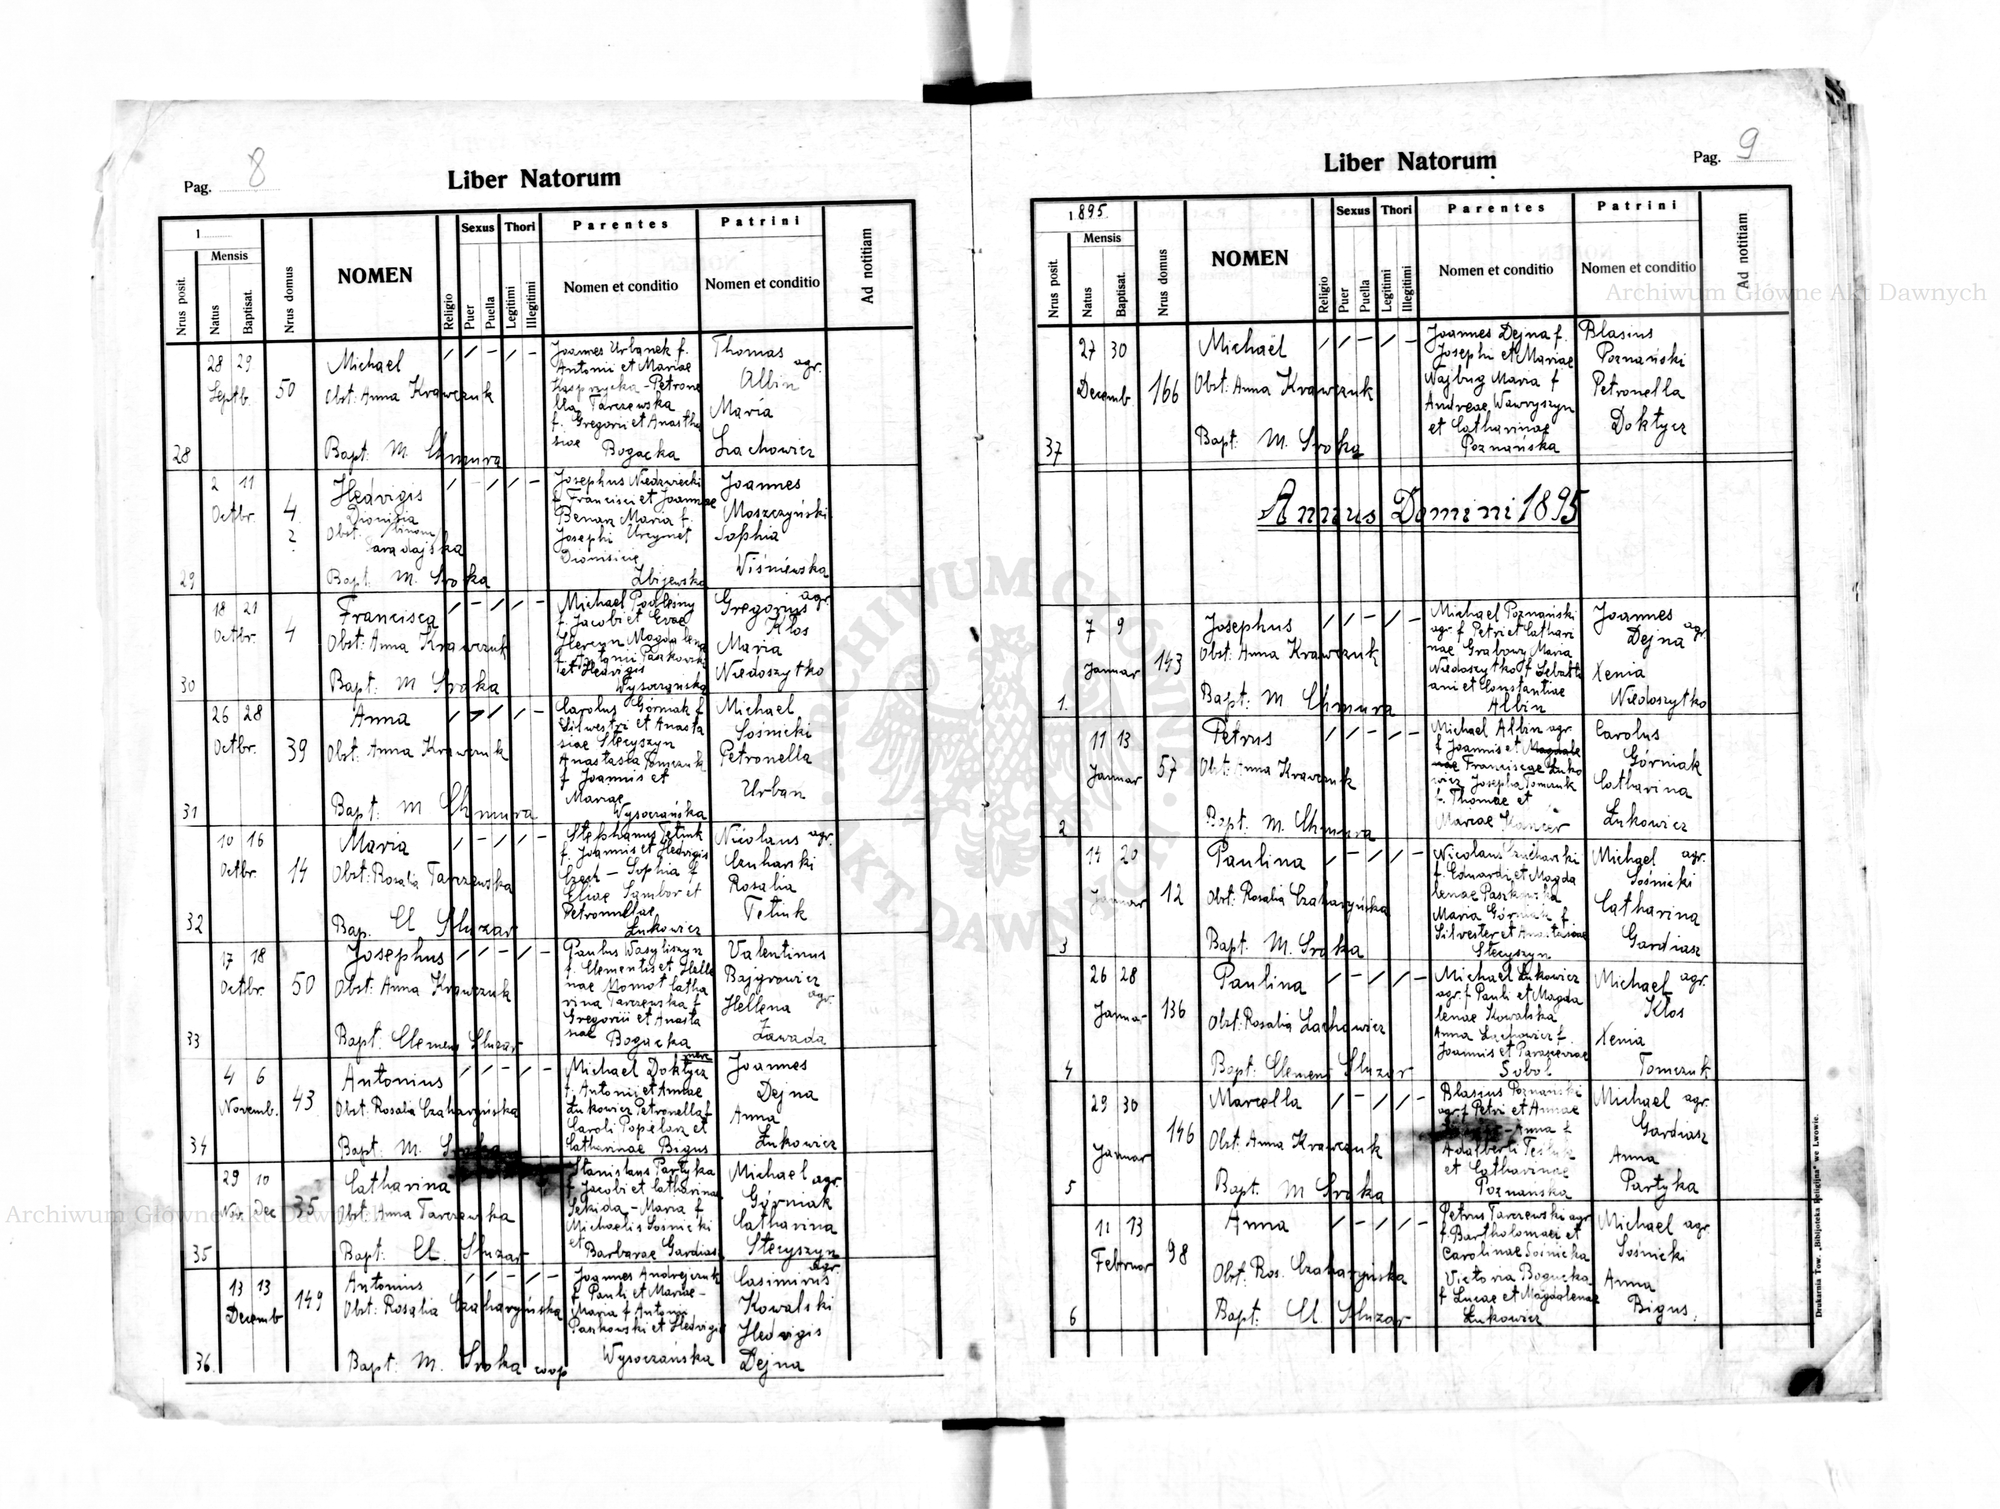 Pag. 8
Liber Natorum
1
Nrus posit.
Mensis
Natus
Baptisat.
Nrus domus
NOMEN
Religio
Sexus
Puer
Puella
Thori
Legitimi
Illegitimi
Parentes
Nomen et conditio
Patrini
Nomen et conditio
Ad notitiam
28
28 29
Septb.
50
Michael
Obst: Anna Krawczuk
Bapt. M. Chmura
Joannes Urbanek f.
Antonii et Mariae
Kasprzycka - Petrone
lla Tarczewska
f. Gregorii et Anastha
siae Bogacka
Thomas agr.
Albin
Maria
Lachowicz
29
2 11
Octbr.
4
2
Hedvigis
Dionisia
Obst.
Bapt. M. Sroka
Josephus Niedzwiecki
f. Francisci et Joannae
Benar Maria f.
Josephi
Zbijewska
Joannes
Moszczyński
Sophia
Wiśniewska
30
18 21
Octbr.
4
Francisca
Obst: Anna Krawczuk
Bapt: M Sroka
Michael Podleśny
f. Jacobi et Evae
Magdalena
f. Antonii Paskowski
et Hedvigis
Wysoczańska
Gregorius agr.
Kłos
Maria
Niedoszytko
31
26 28
Octbr.
39
Anna
Obst: Anna Krawczuk
Bapt: M Chmura
Carolus Górniak f.
Silwestri et Anasta
siae Steryszyn
Anastasia Tomczuk
f Joannis et
Mariae
Wysoczańska
Michael
Sośnicki
Petronella
Urban
32
10 16
Octbr.
14
Maria
Obst: Rosalia Tarczewska
Bap. Cl Sluzar
Stephanus Tetiuk
f. Joannis et Hedvigis
Czech - Sophia f
Eliae Sambor et
Petronellae
Łukowicz
Nicolaus agr.
Czuharski
Rosalia
Tetiuk
33
17 18
Octbr.
50
Josephus
Obst: Anna Krawczuk
Bapt: Clemens Sluzar
Paulus Wasyliszyn
f. Clementis et Helle
nae Momot Catha
rina Tarczewska f
Gregorii et Anasta
siae Bogacka
Valentinus
Bajgrowicz
agr.
Hellena
Zawada
34
4 6
Novemb.
43
Antonius
Obst. Rosalia Czaharyńska
Bapt. M. Sroka
Michael Doktycz
f. Antonii et Annae
Łukowicz Petronella f
Caroli Popelarz et
Catharinae Bigus
Joannes
Dejna
Anna
Łukowicz
35
29 10
Nov. Dec
35
Catharina
Obst: Anna Tarczewska
Bapt: Cl. Sluzar
Stanislaus Partyka
f. Jacobi et Catharinae
Sekida - Maria f
Michaelis Sośnicki
et
Barbarae Gardiasz
Michael agr.
Górniak
Catharina
Steryszyn
36.
13 13
Decemb
149
Antonius
Obst: Rosalia Czaharyńska
Bapt: M. Sroka coop
Joannes Andrejczuk
f Pauli et Mariae -
Maria f Antoni
Paskowski et Hedvigis
Wysoczańska
agr.
Casimirus
Kowalski
Hedvigis
Dejna
Pag. 9
Liber Natorum
1895.
Nrus posit.
Mensis
Natus
Baptisat.
Nrus domus
NOMEN
Religio
Sexus
Puer
Puella
Thori
Legitimi
Illegitimi
Parentes
Nomen et conditio
Patrini
Nomen et conditio
Ad notitiam
37
27 30
Decemb.
166
Michaël
Obst: Anna Krawczuk
Bapt. M. Sroka
Joannes Dejna f.
Josephi et Mariae
Wajbug Maria f
Andreae Wawryszyn
et Catharinae
Poznańska
Blasius
Poznański
Petronella
Doktycz
Annus Domini 1895
1.
7 9
Januar
143
Josephus
Obst: Anna Krawczuk
Bapt: M. Chmura
Michael Poznański
agr. f Petri et Cathari
nae Grabowy Maria
Niedoszytko f Sebasti
ani et Constantiae
Albin
Joannes agr.
Dejna
Xenia
Niedoszytko
2
11 13
Januar
57
Petrus
Obst: Anna Krawczuk
Bapt. M. Chmura
Michael Albin agr.
f Joannis et Magdale
nae Franciscae Łuko
wicz Josepha Tomczuk
f. Thomae et
Mariae Kancer
Carolus
Górniak
Catharina
Łukowicz
3
14 20
Januar
12
Paulina
Obst: Rosalia Czaharyńska
Bapt. M. Sroka
Nicolaus Czucharski
f. Eduardi et Magda
lenae Paszkowska
Maria Górniak f.
Silvester et Anastasiae
Steryszyn
Michael agr.
Sośnicki
Catharina
Gardiasz
4
26 28
Janua-
136
Paulina
Obst: Rosalia Lachowicz
Bapt: Clemens Sluzar
Michael Łukowicz
agr. f Pauli et Magda
lenae Kowalska
Anna Lachowicz f.
Joannis et Parascevae
Sobol
Michael agr.
Kłos
Xenia
Tomczuk
5
29 30
Januar
146
Marcella
Obst. Anna Krawczuk
Bapt. M Sroka
Blasius Poznański
agr. f Petri et Annae
- Anna f
Adalberti Tesluk
et Catharinae
Poznańska
Michael agr.
Gardiasz
Anna
Partyka
6
11 13
Februar
98
Anna
Obst: Ros. Czaharyńska
Bapt: Cl Sluzar
Petrus Tarczewski agr
f. Bartholomaei et
Carolinae Sośnicka
Victoria Bogucka
f Lucae et Magdalenae
Łukowicz
Michael agr.
Sośnicki
Anna
Bigus.
Drukarnia Tow. „Bibljoteka Religijna" we Lwowie.
Archiwum Główne Akt Dawnych
Archiwum Główne Akt Dawnych
ARCHIWUM GŁÓWNE AKT DAWNYCH